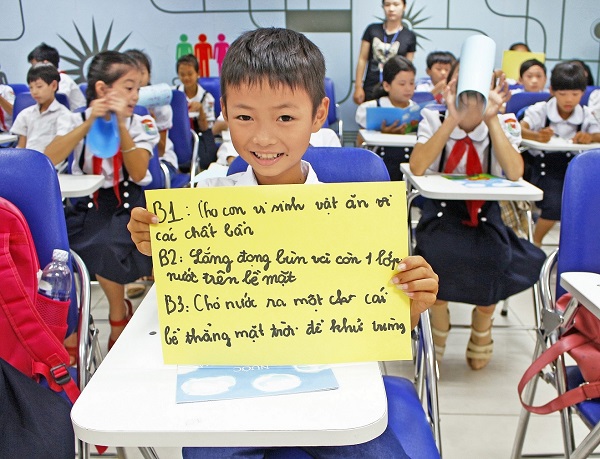 B1: Cho con vi sinh vật ăn vi
các chất bẩn
B2: Lắng đọng bùn và còn 1 lớp
nước trên bề mặt
B3: Cho nước ra một cái
bể thẳng mặt trời để khử trùng
NƯỚC